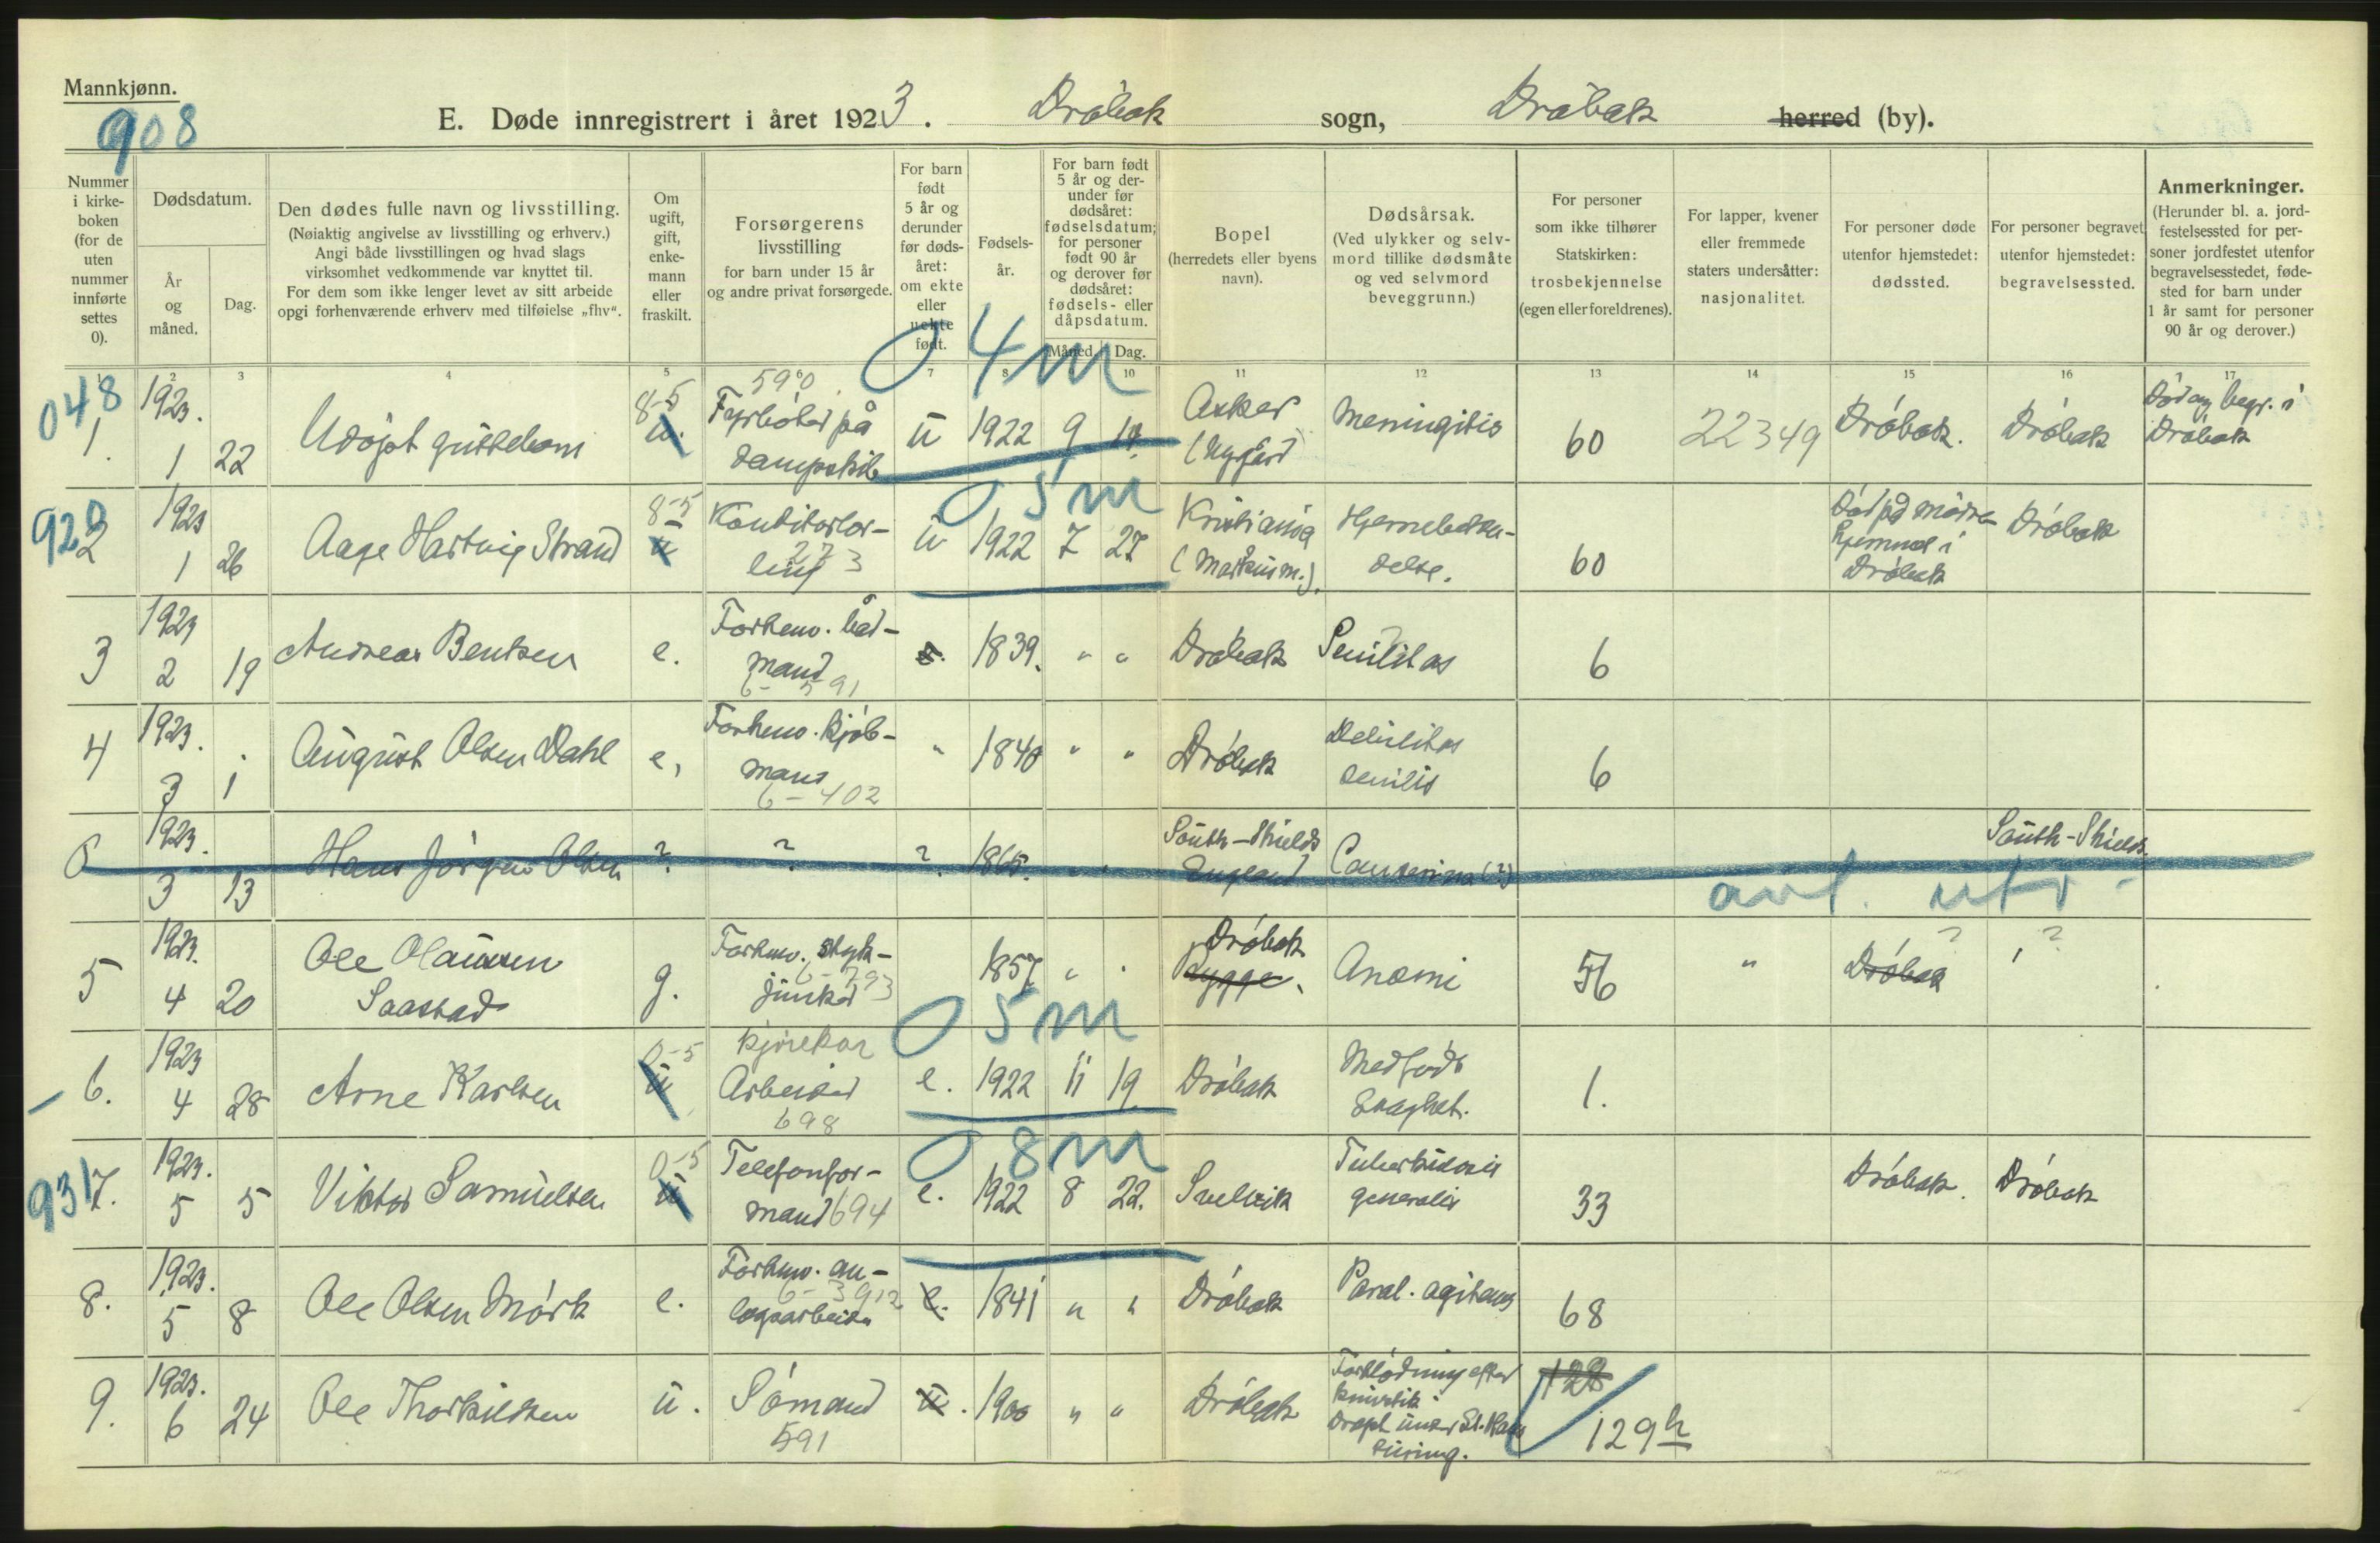 Mannkjønn.
908
E. Døde innregistrert i året 1923. Drøbak sogn, Drøbak herred (by).
Nummer i kirkeboken (for de uten nummer innførte settes 0).
Dødsdatum.
År og måned.
Dag.
Den dødes fulle navn og livsstilling.
(Nøiaktig angivelse av livsstilling og erhverv.)
Angi både livsstillingen og hvad slags
virksomhet vedkommende var knyttet til.
For dem som ikke lenger levet av sitt arbeide
opgi forhenværende erhverv med tilføielse „fhv“.
Om ugift, gift, enkemann eller fraskilt.
Forsørgerens
livsstilling
for barn under 15 år
og andre privat forsørgede.
For barn født 5 år og derunder før dødsåret: om ekte eller uekte født.
Fødselsår.
For barn født 5 år og derunder før dødsåret: fødselsdatum; for personer født 90 år og derover før dødsåret: fødsels- eller dåpsdatum.
Måned. Dag.
Bopel
(herredets eller byens
navn).
Dødsårsak.
(Ved ulykker og selvmord tillike dødsmåte og ved selvmord beveggrunn.)
For personer
som ikke tilhører
Statskirken:
trosbekjennelse
(egen eller foreldrenes).
For lapper, kvener
eller fremmede
staters undersåtter:
nasjonalitet.
For personer døde
utenfor hjemstedet:
dødssted.
For personer begravet
utenfor hjemstedet:
begravelsessted.
Anmerkninger.
(Herunder bl. a. jordfestelsessted for personer jordfestet utenfor begravelsesstedet, fødested for barn under 1 år samt for personer 90 år og derover.)
1 2 3 4 5 6 7 8 9 10 11 12 13 14 15 16 17
04m
048 1. 1923. 1 22 Udøpt guttebarn 8-5 u. 590 Fyrbøter på dampskib ü 1922 9 Asker (Nygård) Meningitis 60 22349 Drøbak. Drøbak Død og begr. i Drøbak
05m
920 2 1923 1 26 Aage Hartvig Strand 8-5 u Konditorlærling 273 ü 1922 7 27 Kristiania (Markus m.). Hjernebetændelse. 60 Død på mødrehjemmet i Drøbak Drøbak
3 1923 2 19 Andreas Bentsen e. Forhenv. bådmand 6-591 e. 1839. " " Drøbak Senilitas 6
4 1923. 3 1 August Olsen Dahl e, Forhenv. kjøbmand 6-402 " 1840 " " Drøbak Debilitas senilis 6
0 1923. 3 13 Hans Jørgen Olsen ? ? ? 1865. " " South-Shields England (?) South-Shields
avl. utv-
5 1923. 4 20 Ole Olaussen Saastad g. Forhenv. stykjunker 6-793 1857 " " Drøbak Rygge. Anæmi 56 " Drøbak ? ?
05m
6. 1923 4 28 Arne Karlsen 0-5 u kjørekar Arbeider 698 e. 1922 11 19 Drøbak Medfødt Svaghet. 1.
08m
931 7. 1923. 5 5 Viktor Samuelsen 0-5 u Telefonformand 694 e. 1922 8 22. Svelvik Tuberkulosis generalis 33 Drøbak. Drøbak
8. 1923. 5 8 Ole Olsen Mørk e. Forhenv. anlegsarbeider 6-3912 e. 1841 " " Drøbak Paral. agitans 68
9. 1923. 6 24 Ole Thorkildsen u. Sømand 591 u. 1900 " " Drøbak Forblødning efter knivstik Dræpt under St. Hans turing. 128 129h